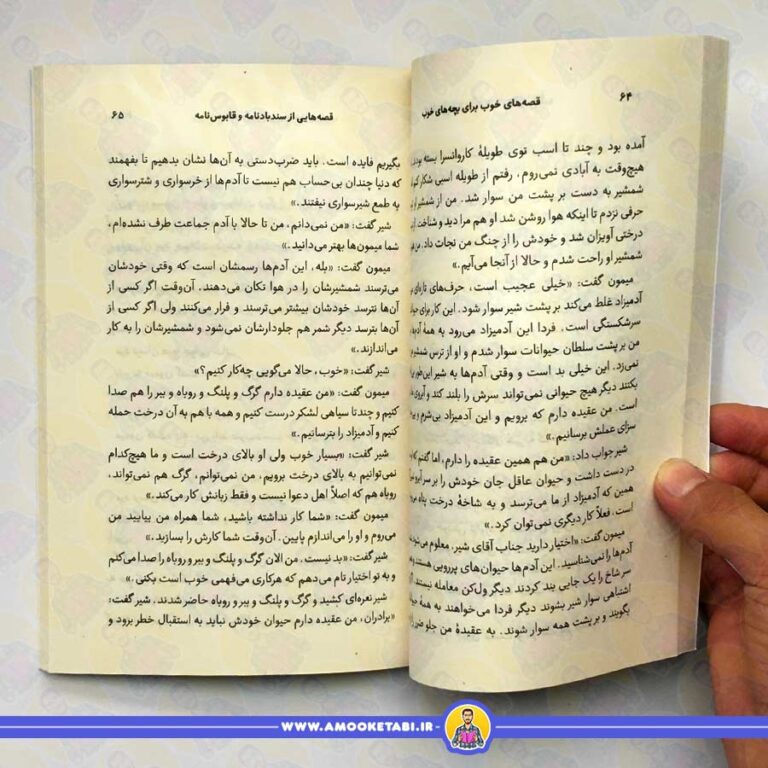 ۶۴
قصه‌های خوب برای بچه‌های خوب
آمده بود و چند تا اسب توی طویلهٔ کاروانسرا بسته بودند
هیچ‌وقت به آبادی نمی‌روم، رفتم از طویله اسبی شکار کنم
شمشیر به دست بر پشت من سوار شد. من از شمشیر او
حرفی نزدم تا اینکه هوا روشن شد او هم مرا دید و شناخت
درختی آویزان شد و خودش را از چنگ من نجات داد. من
شمشیر او راحت شدم و حالا از آنجا می‌آیم.»
میمون گفت: «خیلی عجیب است، حرف‌های تازه‌ای
آدمیزاد غلط می‌کند بر پشت شیر سوار شود. این کار برای
سرشکستگی است. فردا این آدمیزاد می‌رود به همهٔ
من بر پشت سلطان حیوانات سوار شدم و او از ترس شمشیر
نمی‌زد. این خیلی بد است و وقتی آدم‌ها به شیر این‌طور
بکنند دیگر هیچ حیوانی نمی‌تواند سرش را بلند کند و آبروی
است. من عقیده دارم که برویم و این آدمیزاد بی‌شرم و
سزای عملش برسانیم.»
شیر جواب داد: «من هم همین عقیده را دارم، اما گفتم که
در دست داشت و حیوان عاقل جان خودش را بر سر آبرو
همین که آدمیزاد از ما می‌ترسد و به شاخهٔ درخت پناه
است. فعلاً کار دیگری نمی‌توان کرد.»
میمون گفت: «اختیار دارید جناب آقای شیر، معلوم می‌شود
آدم‌ها را نمی‌شناسید. این آدم‌ها حیوان‌های پررویی هستند و
سر شاخ را یک جایی بند کردند دیگر ول‌کن معامله نیستند.
اشتباهی سوار شیر بشوند دیگر فردا می‌خواهند به همهٔ
بگویند و بر پشت همه سوار شوند. به عقیدهٔ من جلو ضرر
قصه‌هایی از سندبادنامه و قابوس‌نامه
۶۵
بگیریم فایده است. باید ضرب‌دستی به آن‌ها نشان بدهیم تا بفهمند
که دنیا چندان بی‌حساب هم نیست تا آدم‌ها از خرسواری و شترسواری
به طمع شیرسواری نیفتند.»
شیر گفت: «من نمی‌دانم، من تا حالا با آدم جماعت طرف نشده‌ام،
شما میمون‌ها بهتر می‌دانید.»
میمون گفت: «بله، این آدم‌ها رسمشان است که وقتی خودشان
می‌ترسند شمشیرشان را در هوا تکان می‌دهند. آن‌وقت اگر کسی از
آن‌ها نترسد خودشان بیشتر می‌ترسند و فرار می‌کنند ولی اگر کسی از
آن‌ها بترسد دیگر شمر هم جلودارشان نمی‌شود و شمشیرشان را به کار
می‌اندازند.»
شیر گفت: «خوب، حالا می‌گویی چه‌کار کنیم؟»
میمون گفت: «من عقیده دارم گرگ و پلنگ و روباه و ببر را هم صدا
کنیم و چند تا سیاهی لشکر درست کنیم و همه با هم به آن درخت حمله
کنیم و آدمیزاد را بترسانیم.»
شیر گفت: «بسیار خوب ولی او بالای درخت است و ما هیچ‌کدام
نمی‌توانیم به بالای درخت برویم، من نمی‌توانم، گرگ هم نمی‌تواند،
روباه هم که اصلاً اهل دعوا نیست و فقط زبانش کار می‌کند.»
میمون گفت: «شما کار نداشته باشید، شما همراه من بیایید من
می‌روم و او را می‌اندازم پایین. آن‌وقت شما کارش را بسازید.»
شیر گفت: «بد نیست. من الان گرگ و پلنگ و ببر و روباه را صدا می‌کنم
و به تو اختیار تام می‌دهم که هرکاری می‌فهمی خوب است بکنی.»
شیر نعره‌ای کشید و گرگ و پلنگ و ببر و روباه حاضر شدند. شیر گفت:
«برادران، من عقیده دارم حیوان خودش نباید به استقبال خطر برود و
WWW.AMOOKETABI.IR